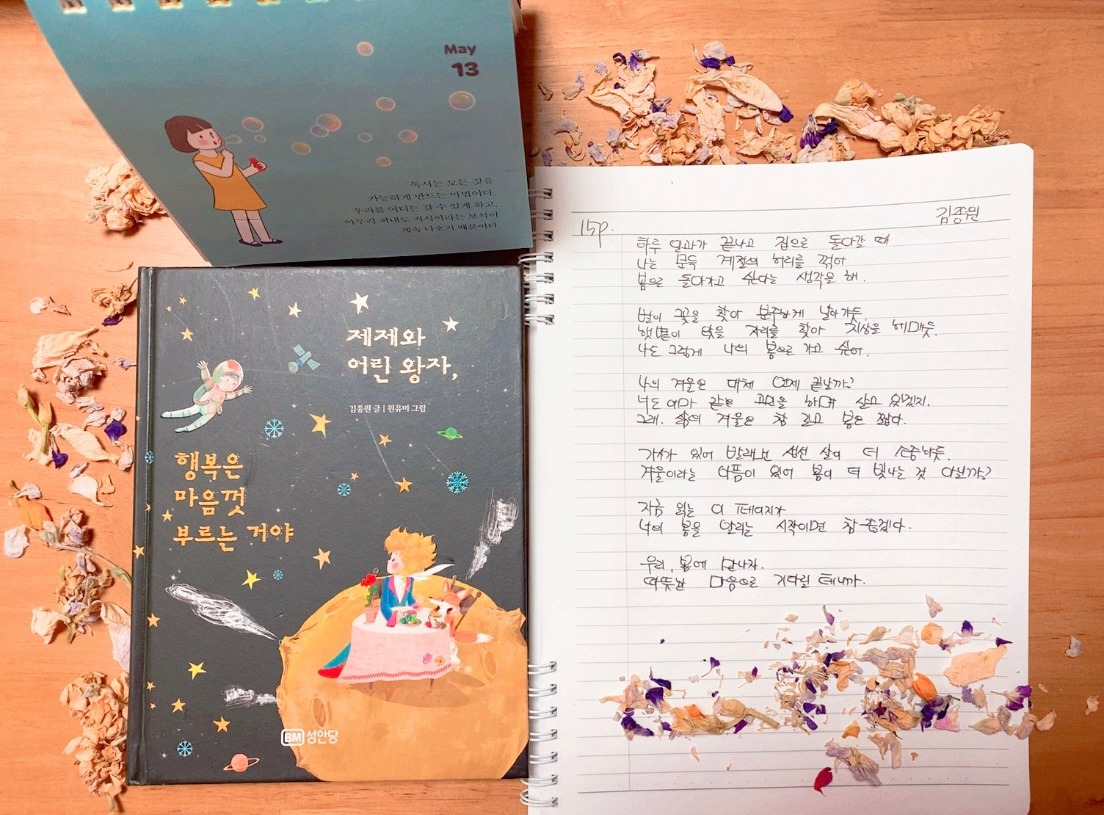 May
13
독서는 모든 것을
가능하게 만드는 마법이다.
우리를 어디든 갈 수 있게 하고,
아무리 꺼내도 지식이라는 보석이
계속 나오기 때문이다.
제제와
어린 왕자,
김종원 글 | 원유미 그림
행복은
마음껏
부르는 거야
BM 성안당
15p.
김종원
하루 일과가 끝나고 집으로 돌아갈 때
나는 문득 계절의 허리를 꺾어
봄으로 돌아가고 싶다는 생각을 해.
벌이 꽃을 찾아 분주하게 날아가듯,
햇볕이 앉을 자리를 찾아 지상을 헤매듯,
나도 그렇게 나의 봄으로 가고 싶어.
나의 겨울은 대체 언제 끝날까?
너도 아마 같은 고민을 하며 살고 있겠지.
그래. 삶의 겨울은 참 길고 봄은 짧다.
가시가 있어 장미의 삶이 더 소중하듯,
겨울이라는 아픔이 있어 봄이 더 빛나는 것 아닐까?
지금 읽는 이 페이지가
너의 봄을 알리는 시작이면 참 좋겠다.
우리, 봄에 만나자.
따뜻한 마음으로 기다릴 테니까.